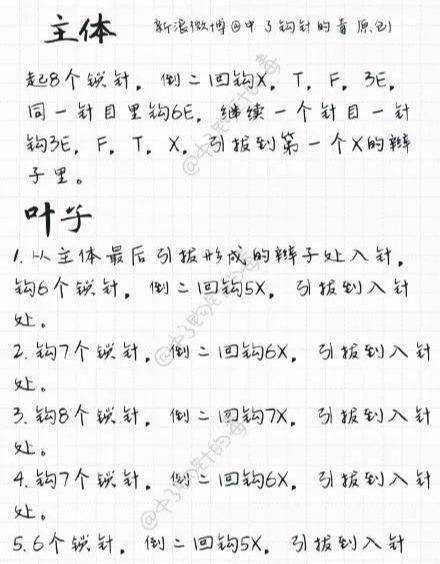 主体 新浪微博@中了钩针的毒原创
起8个锁针，倒二回钩X，T，F，3E，
同一针目里钩6E，继续一个针目一针
钩3E，F，T，X，引拔到第一个X的辫
子里。
叶子
1.从主体最后引拔形成的辫子处入针，
钩6个锁针，倒二回钩5X，引拔到入针
处。
2.钩7个锁针，倒二回钩6X，引拔到入针
处。
3.钩8个锁针，倒二回钩7X，引拔到入针
处。
4.钩7个锁针，倒二回钩6X，引拔到入针
处。
5.6个锁针，倒二回钩5X，引拔到入针
@中了钩针的毒
@中了钩针的毒
@中了钩针的毒